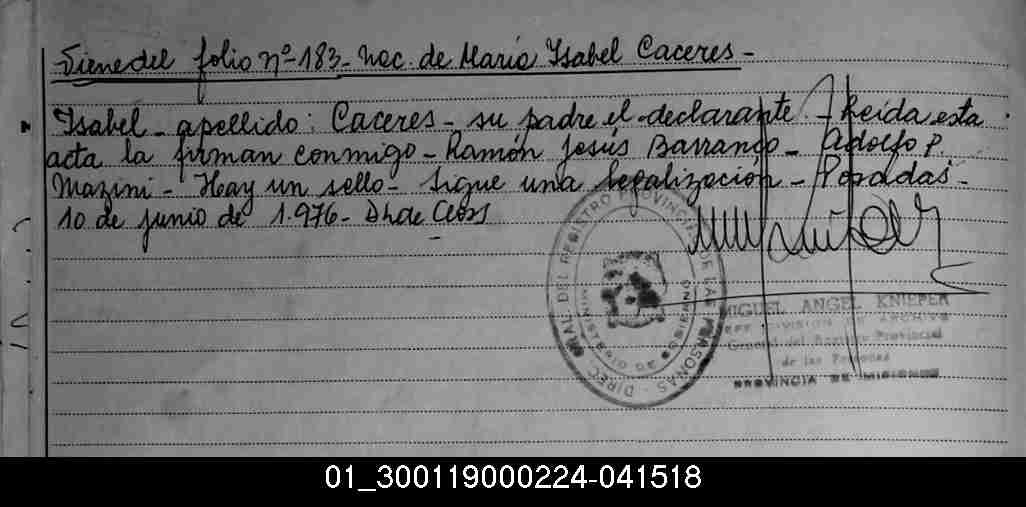 Viene del folio nº 183 - Nac. de María Isabel Caceres -
Isabel - apellido: Caceres - su padre el declarante - Leída esta
acta la firman conmigo - Ramón Jesús Barranco - Adolfo P.
Mazini - Hay un sello - Sigue una legalización - Posadas -
10 de junio de 1.976 -
MIGUEL ANGEL KNIEPER
JEFE DIVISION DE ARCHIVO
General del Registro Provincial
de las Personas
PROVINCIA DE MISIONES
REGISTRO PROVINCIAL DE LAS PERSONAS
01_300119000224-041518